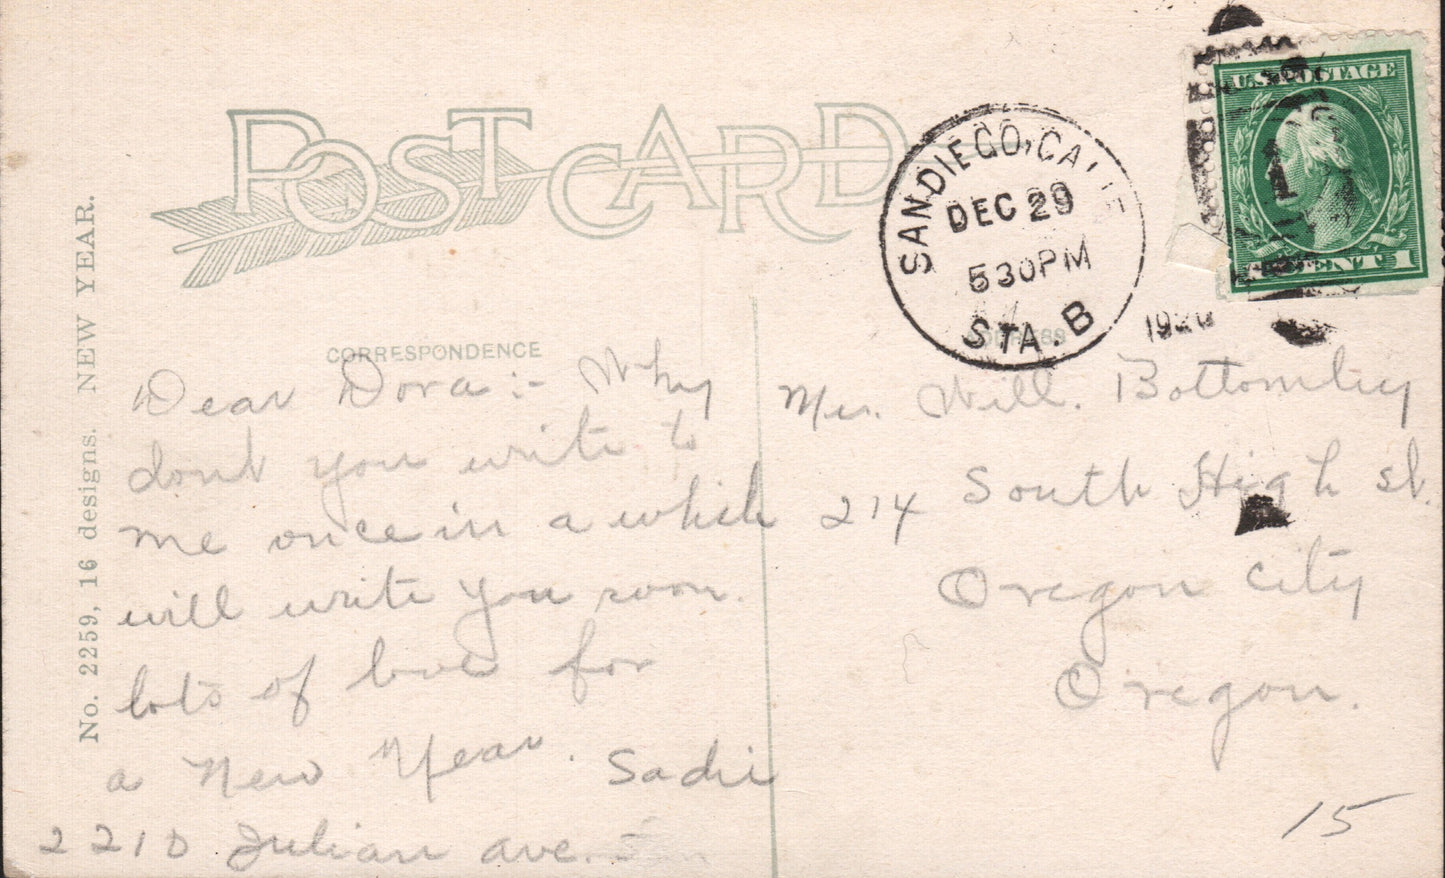 POST CARD
U.S. POSTAGE
1 CENT 1
SAN DIEGO, CALIF
DEC 29
5 30 PM
STA. B
192
No. 2259, 16 designs. NEW YEAR.
CORRESPONDENCE
ADDRESS
Dear Dora:- Why
dont you write to
me once in a while
will write you soon.
lots of love for
a New Year. Sadie
2210 Julian ave.
Mrs. Will. Bottomley
214 South High st.
Oregon City
Oregon.
15